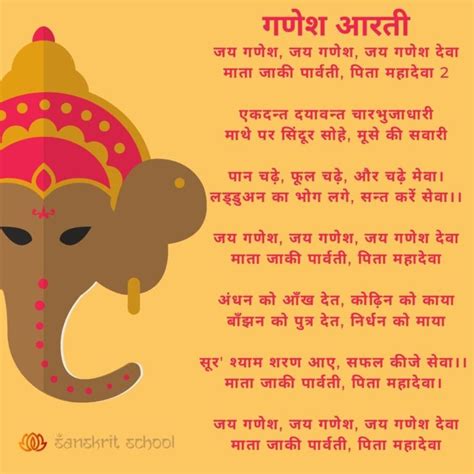 गणेश आरती
जय गणेश, जय गणेश, जय गणेश देवा
माता जाकी पार्वती, पिता महादेवा 2
एकदन्त दयावन्त चारभुजाधारी
माथे पर सिंदूर सोहे, मूसे की सवारी
पान चढ़े, फूल चढ़े, और चढ़े मेवा।
लड्डुअन का भोग लगे, सन्त करें सेवा।।
जय गणेश, जय गणेश, जय गणेश देवा
माता जाकी पार्वती, पिता महादेवा
अंधन को आँख देत, कोढ़िन को काया
बाँझन को पुत्र देत, निर्धन को माया
सूर' श्याम शरण आए, सफल कीजे सेवा।।
माता जाकी पार्वती, पिता महादेवा।
जय गणेश, जय गणेश, जय गणेश देवा
माता जाकी पार्वती, पिता महादेवा
sanskrit school